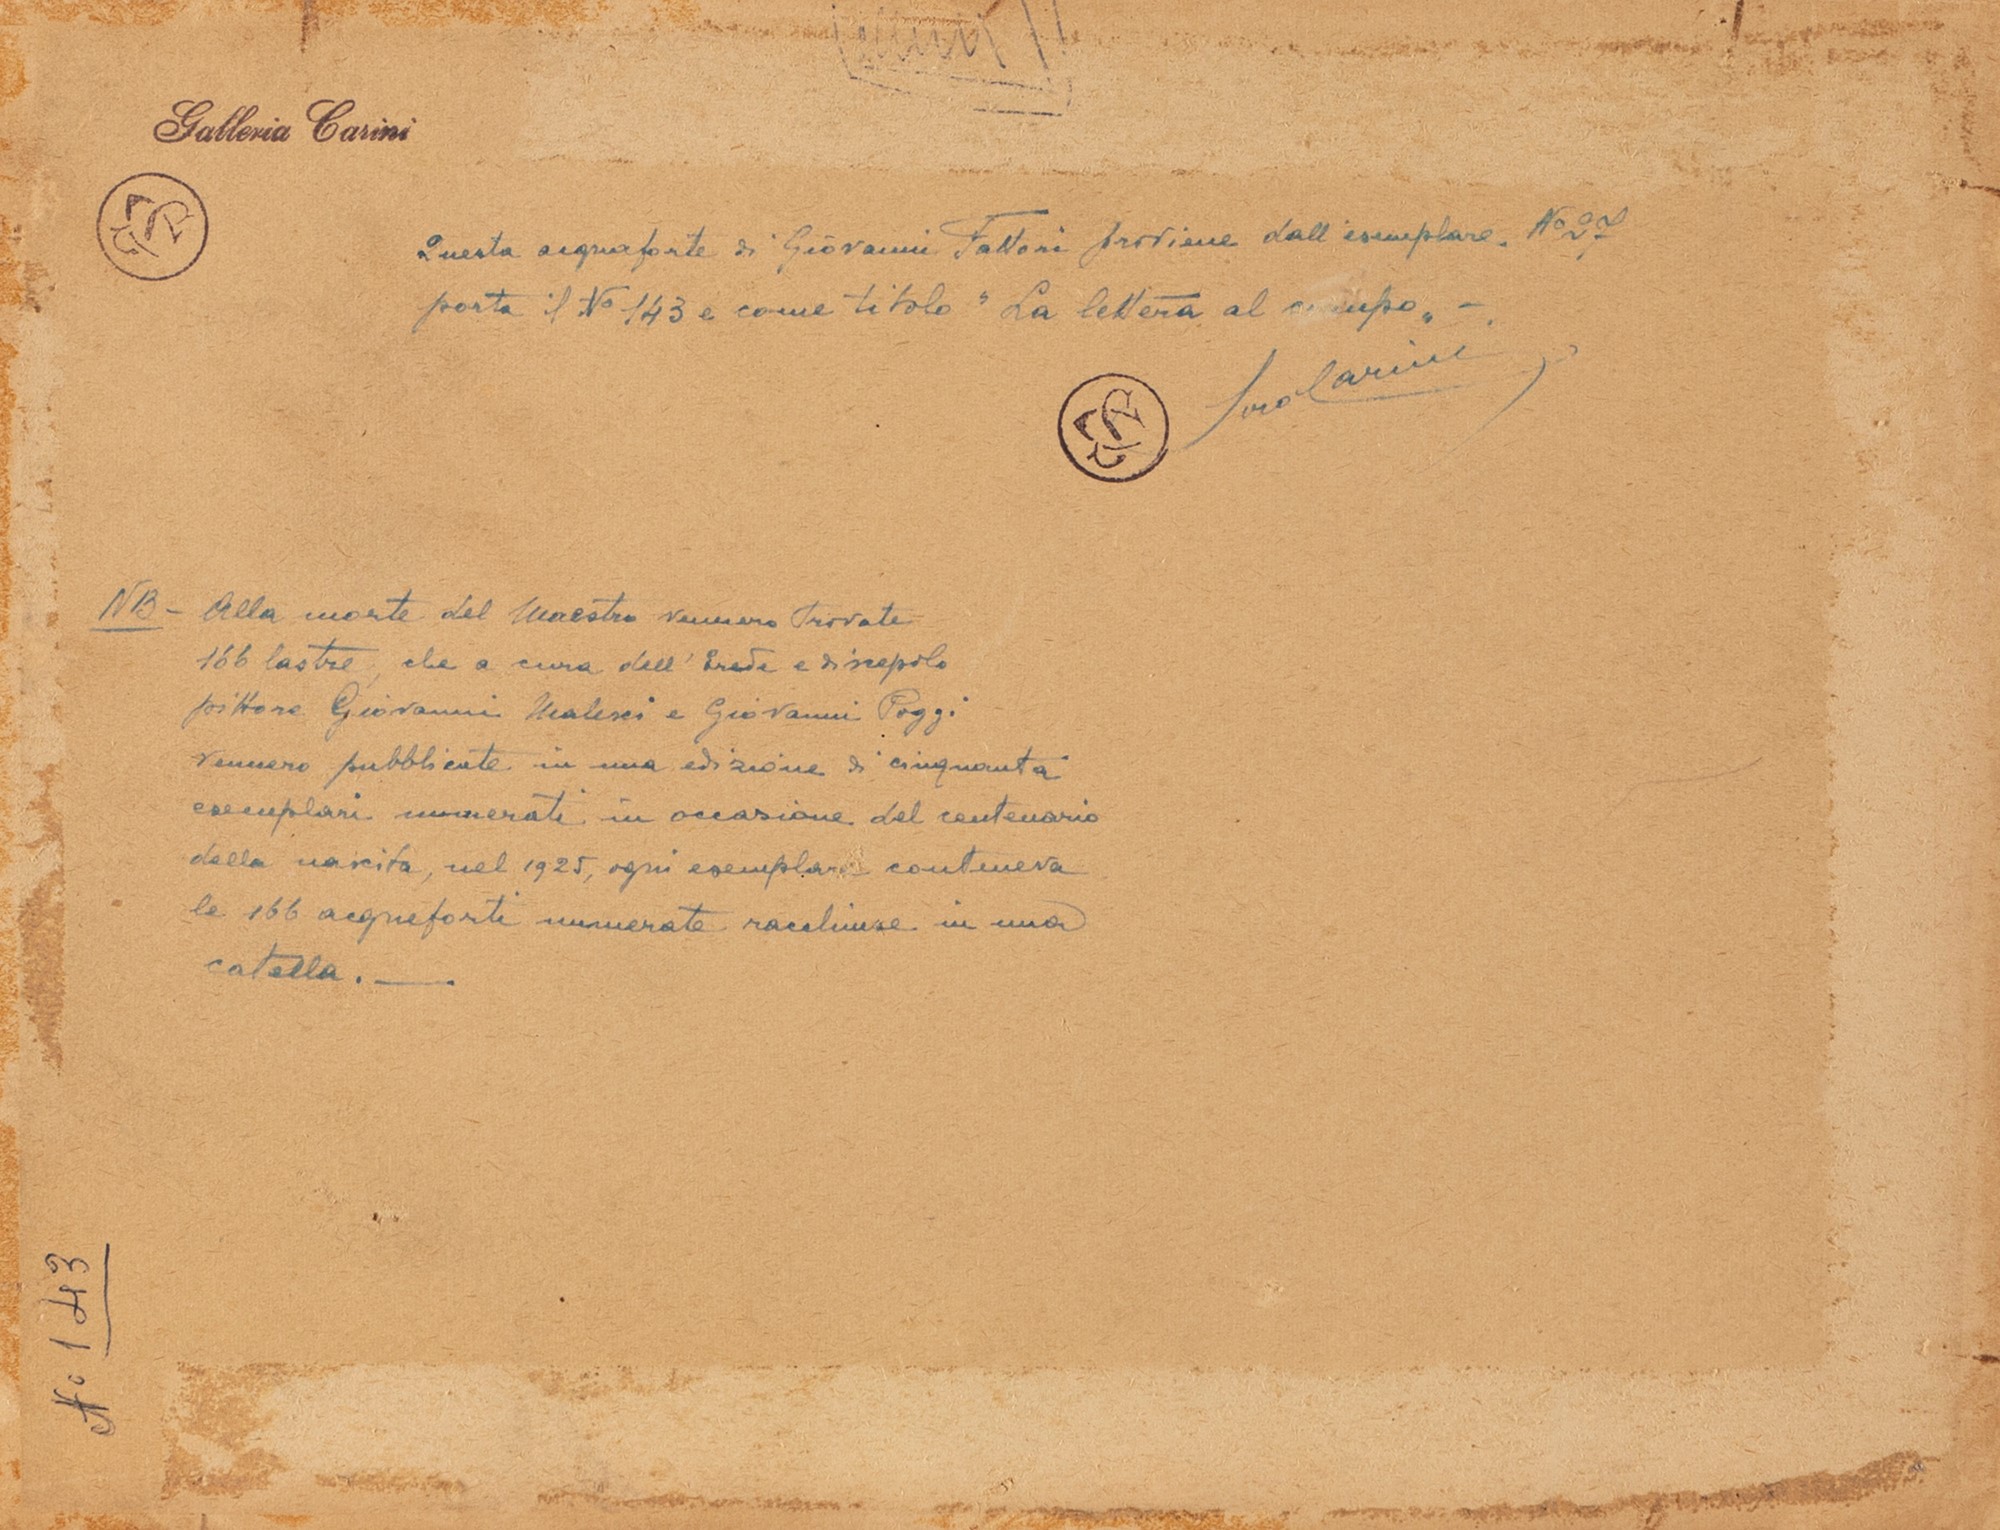 Galleria Carini
Questa acquaforte di Giovanni Fattori proviene dall'esemplare. No 27
porta il No 143 e come titolo "La lettera al campo" -.
Carini
NB - Alla morte del Maestro vennero trovate
166 lastre, che a cura dell'Erede e discepolo
pittore Giovanni Malesci e Giovanni Poggi
vennero pubblicate in una edizione di cinquanta
esemplari numerati in occasione del centenario
della nascita, nel 1925, ogni esemplare conteneva
le 166 acqueforti numerate racchiuse in una
catella. —
No 143